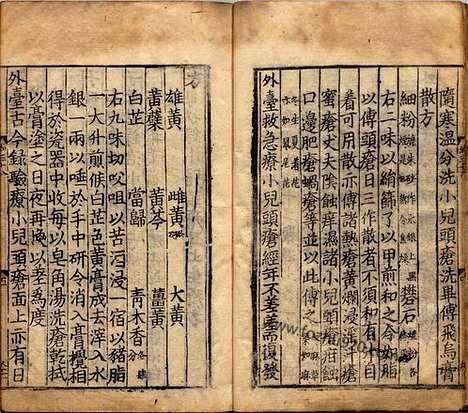 隨寒溫分洗小兒頭瘡洗畢傅飛烏膏
散方
細粉 礬石
右二味以絹篩了以甲煎和之令如脂
以傅頭瘡日三作散者不須和有汁自出
者可用散亦傅諸熱瘡黃爛浸淫汁瘡
蜜瘡丈夫陰蝕痒濕諸小兒頭瘡疳蝕
口邊肥瘡蝸瘡等並以此傅之
外臺救急療小兒頭瘡經年不差差而復發
方
雄黃 雌黃 大黃
黃蘗 黃芩 薑黃
白芷 當歸 青木香
右九味切㕮咀以苦酒浸一宿以豬脂
一大升煎候白芷色黃膏成去滓入水
銀一兩以唾於手中研令消入膏攪相
得於瓷器中收每以皂角湯洗瘡乾拭
以膏塗之日夜再換以差為度
外臺古今錄驗療小兒頭瘡面上亦有日